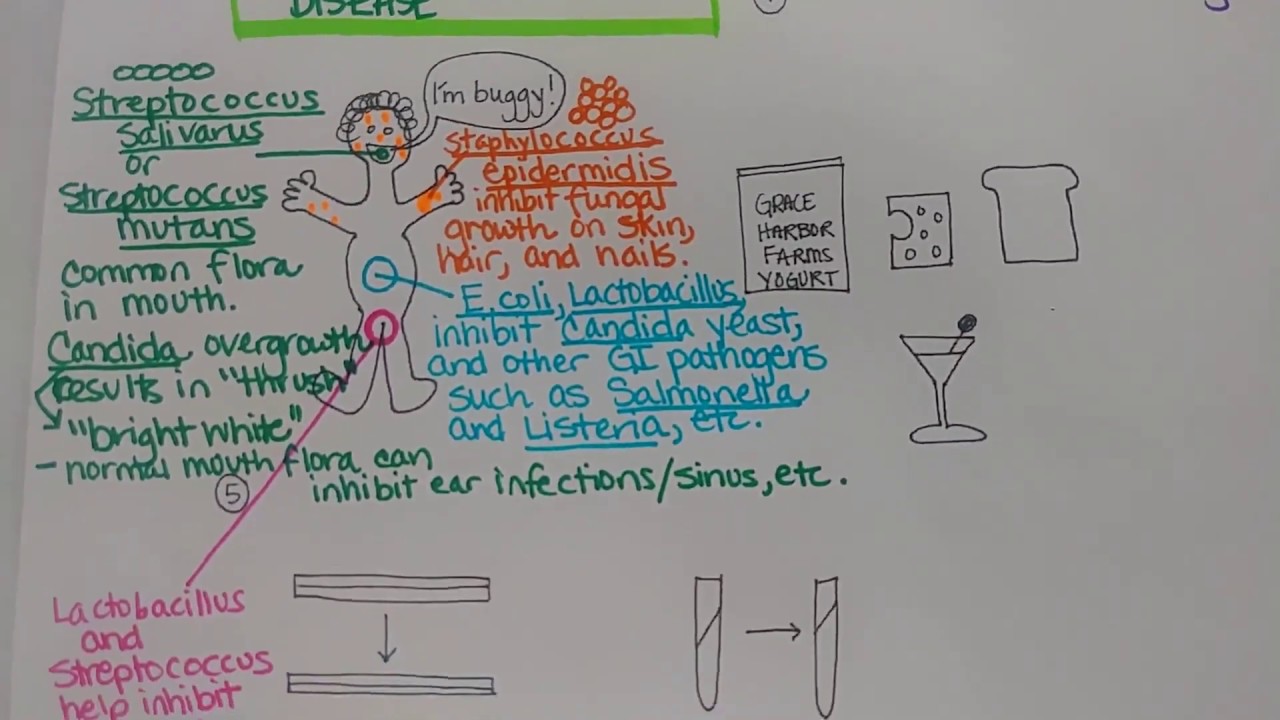 DISEASE
Streptococcus
Salivarus
or
Streptococcus
mutans
common flora
in mouth.
Candida overgrowth
results in "thrush"
"bright white"
- normal mouth flora can
inhibit ear infections/sinus, etc.
I'm buggy!
Staphylococcus
epidermidis
inhibit fungal
growth on skin,
hair, and nails.
E. coli, Lactobacillus,
inhibit Candida yeast,
and other GI pathogens
such as Salmonella
and Listeria, etc.
GRACE
HARBOR
FARMS
YOGURT
5
Lactobacillus
and
Streptococcus
help inhibit